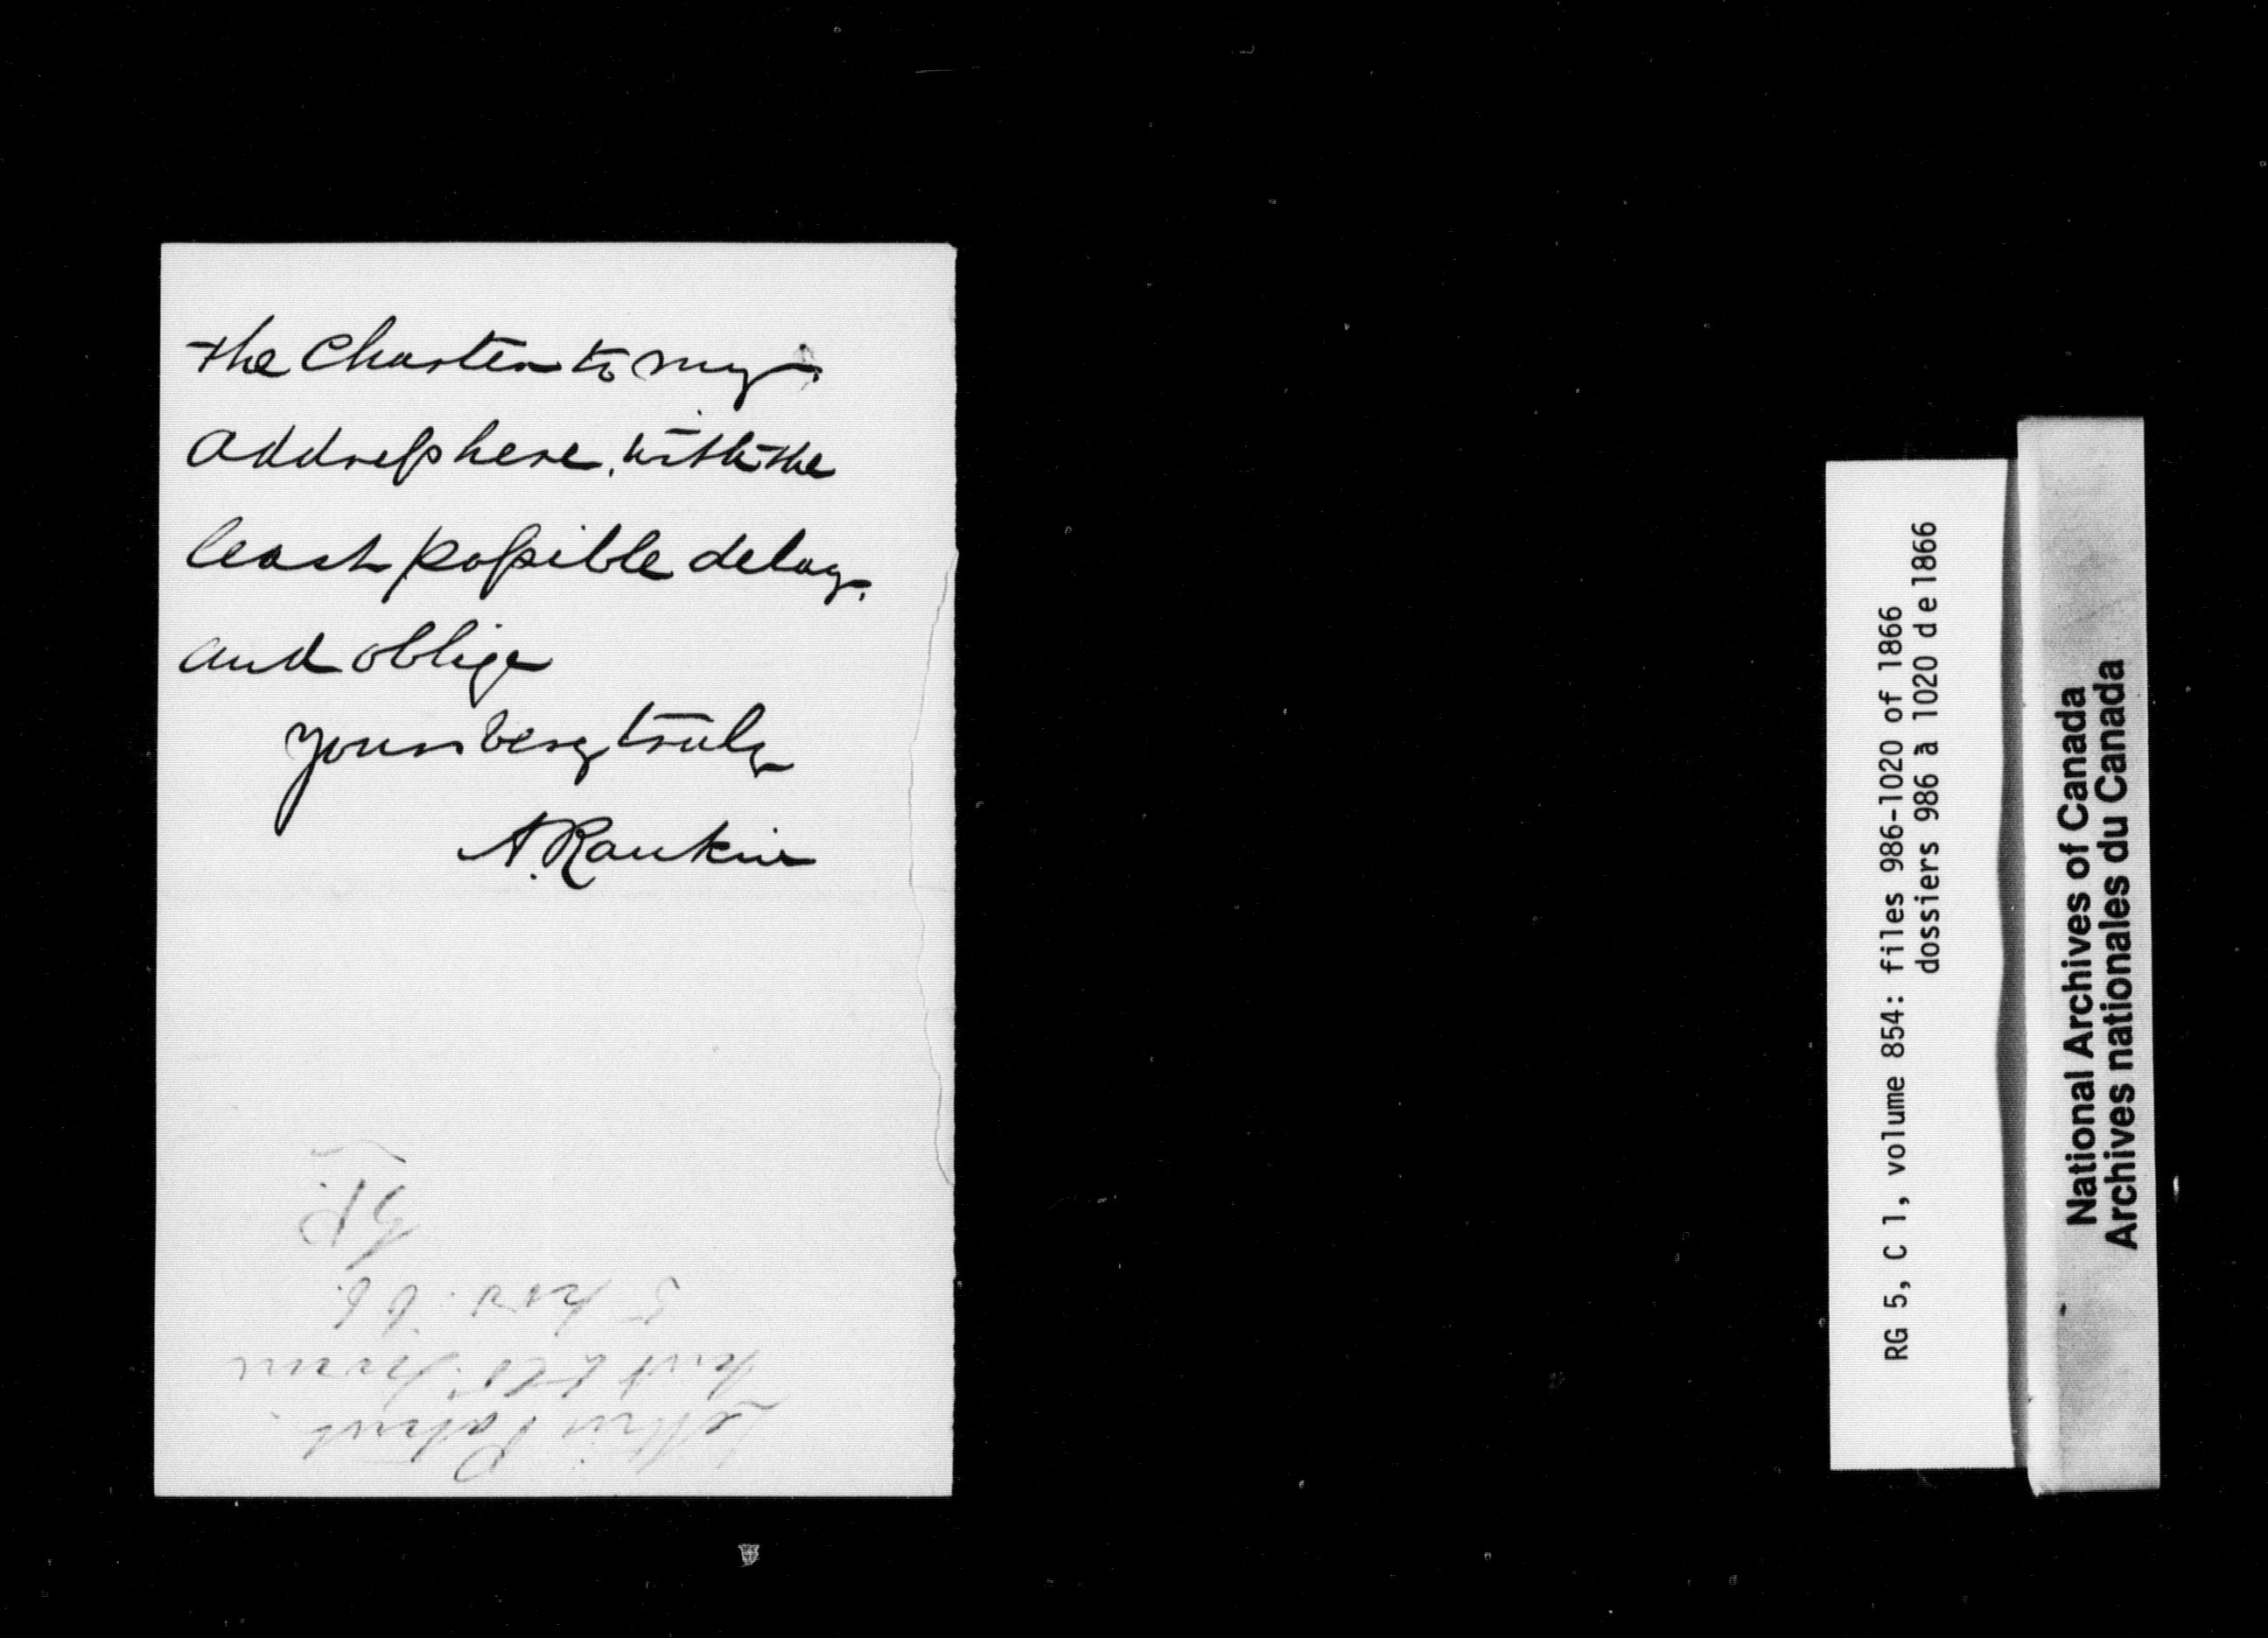 the Charter to my
address here, with the
least possible delay.
and oblige
yours very truly
A. Rankin
Letters Patent
5 Nov. 66.
RG 5, C 1, volume 854: files 986-1020 of 1866
dossiers 986 à 1020 d e 1866
National Archives of Canada
Archives nationales du Canada